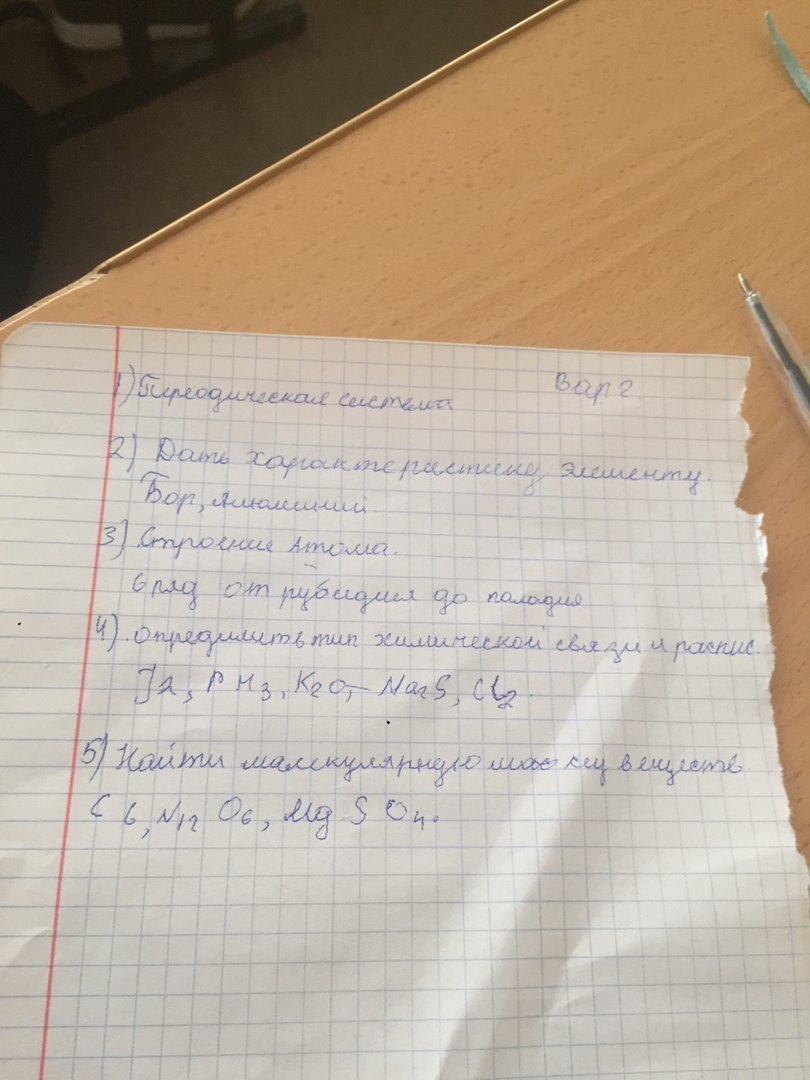 Вар 2.
1) Переодическая система
2) Дать характеристику элементу.
Бор, Алюминий.
3) Строение Атома.
6 ряд от рубидия до паладия
4). определить тип химической связи и распис.
J2, PH3, K2O, Na2S, Cl2.
5) Найти малекулярную массу веществ
C6, N12 O6, MgSO4.